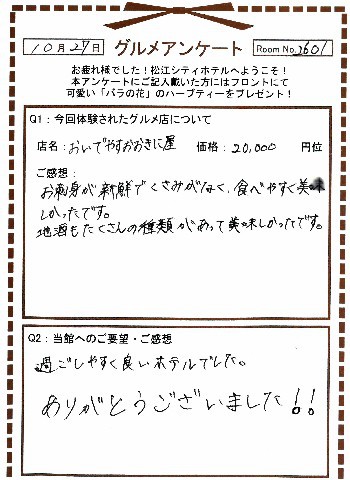 10月27日 グルメアンケート Room No.2601
お疲れ様でした！松江シティホテルへようこそ！
本アンケートにご記入戴いた方にはフロントにて
可愛い「バラの花」のハーブティーをプレゼント！
Q1：今回体験されたグルメ店について
店名：おいでやすおおきに屋 価格：20,000 円位
ご感想：
お刺身が新鮮でくさみがなく、食べやすく美味
しかったです。
地酒もたくさんの種類があって美味しかったです。
Q2：当館へのご要望・ご感想
過ごしやすく良いホテルでした。
ありがとうございました！！